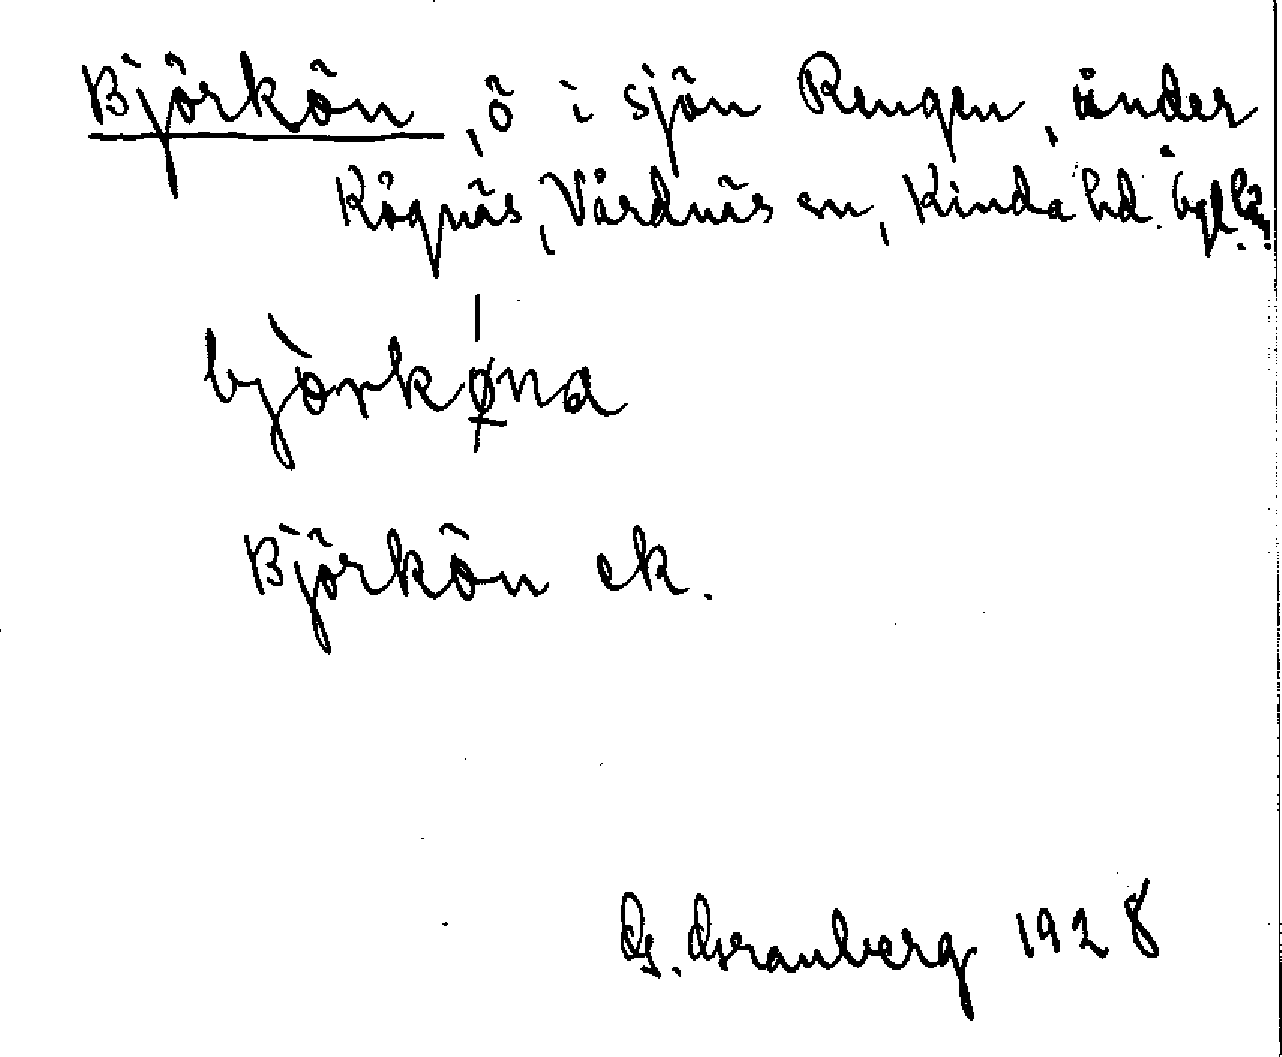 Björkön, ö i sjön Rengen, under
Rågnäs, Vårdnäs sn, Kinda hd.
björkøna
Björkön ek.
G. Granberg 1928